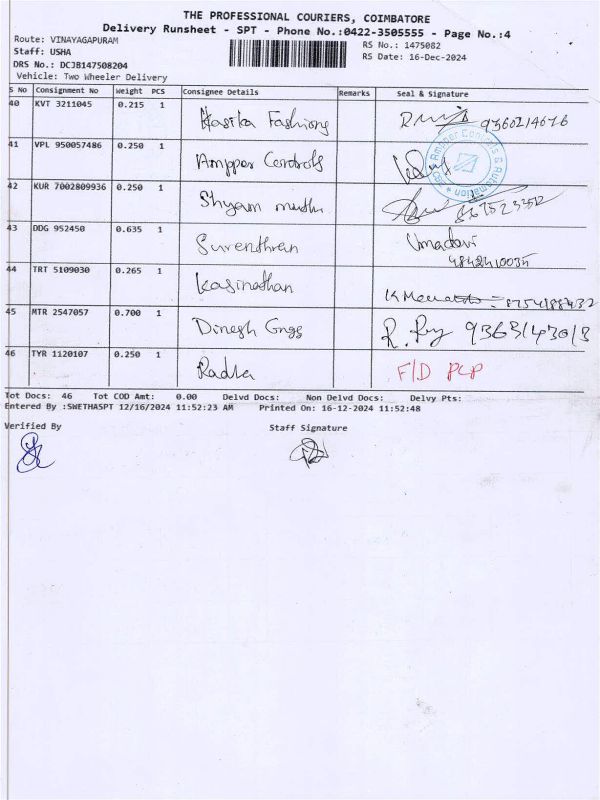 THE PROFESSIONAL COURIERS, COIMBATORE
Delivery Runsheet - SPT - Phone No.:0422-3505555 - Page No.:4
Route: VINAYAGAPURAM
RS No.: 1475082
Staff: USHA
RS Date: 16-Dec-2024
DRS No.: DCJB147508204
Vehicle: Two Wheeler Delivery
S No Consignment No Weight PCS Consignee Details Remarks Seal & Signature
40 KVT 3211045 0.215 1 Hasika Fashions
41 VPL 950057486 0.250 1 Ampper Controls
42 KUR 7002809936 0.250 1 Shyam muthu
43 DDG 952450 0.635 1 Surenthran Umadevi
44 TRT 5109030 0.265 1 Kasinathan
45 MTR 2547057 0.700 1 Dinesh
46 TYR 1120107 0.250 1 Radha F/D PCP
Tot Docs: 46 Tot COD Amt: 0.00 Delvd Docs: Non Delvd Docs: Delvy Pts:
Entered By :SWETHASPT 12/16/2024 11:52:23 AM Printed On: 16-12-2024 11:52:48
Verified By Staff Signature